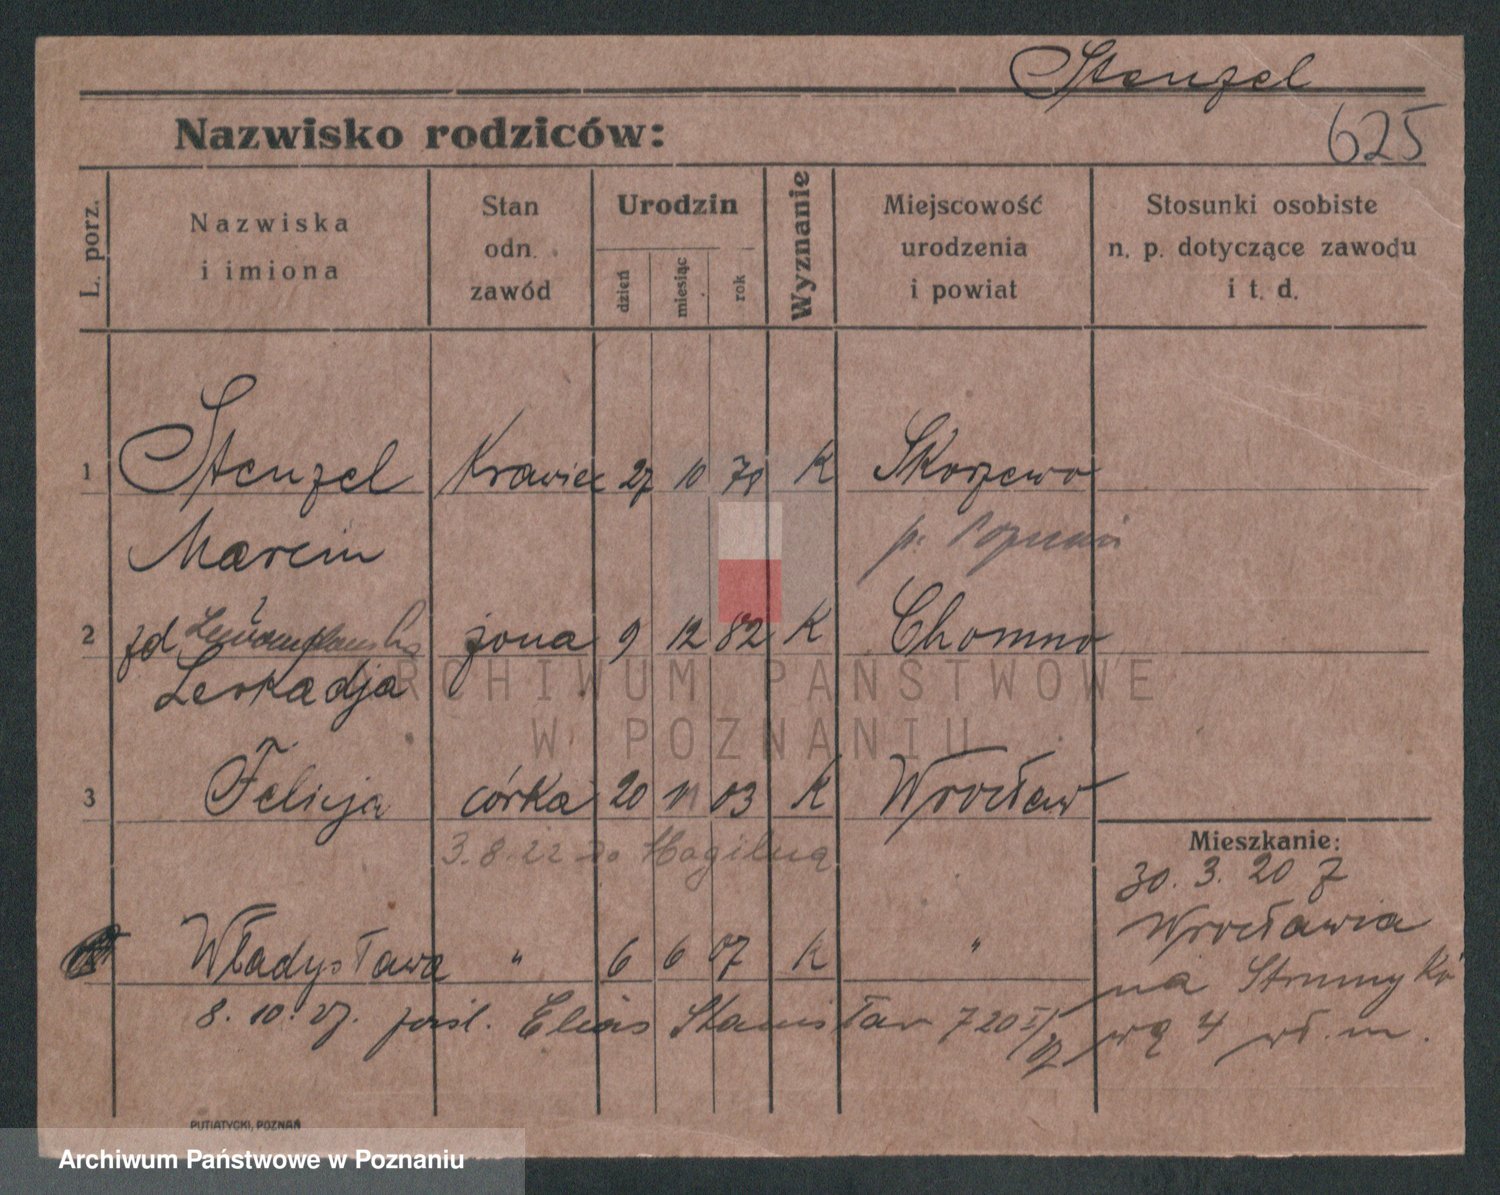 Stenzel
Nazwisko rodziców:
625
L. porz.
Nazwiska
i imiona
Stan
odn.
zawód
Urodzin
dzień
miesiąc
rok
Wyznanie
Miejscowość
urodzenia
i powiat
Stosunki osobiste
n. p. dotyczące zawodu
i t. d.
1 Stenzel Krawiec 27 10 78 K Skorzewo
Marcin p. Poznań
2 zd żona 9 12 82 K Chomno
Leokadja
ARCHIWUM PAŃSTWOWE
W POZNANIU
3 Felicja córka 20 11 03 K Wrocław
3.8.22 do Mogilna
Mieszkanie:
30. 3. 20 z
Wrocławia
na Strumyko
wą 4 wł. m.
Władysława " 6 6 07 K "
8. 10. 27. pośl. Elias Stanisław 720 I/
PUTIATYCKI, POZNAŃ
Archiwum Państwowe w Poznaniu